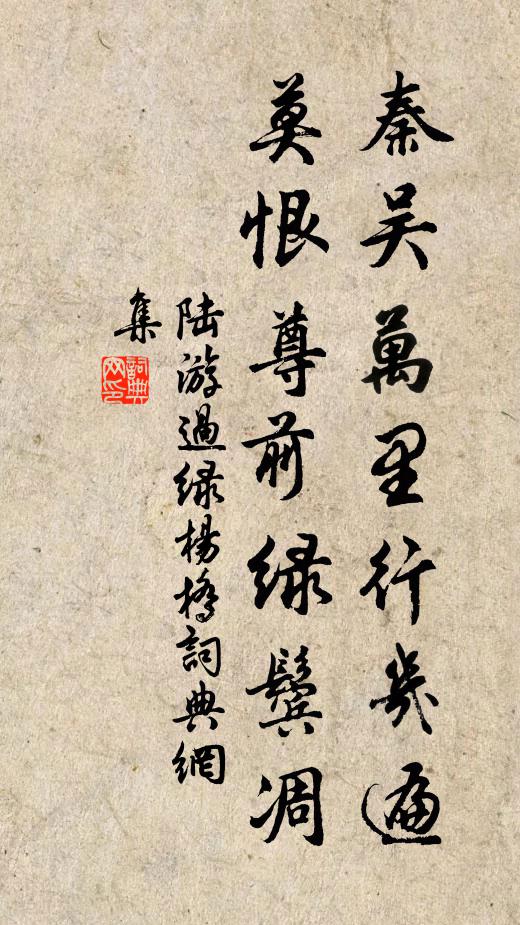 秦吴萬里行幾遍
莫恨尊前緑鬓凋
陆游過緑楊橋詞典網
集
詞典网印